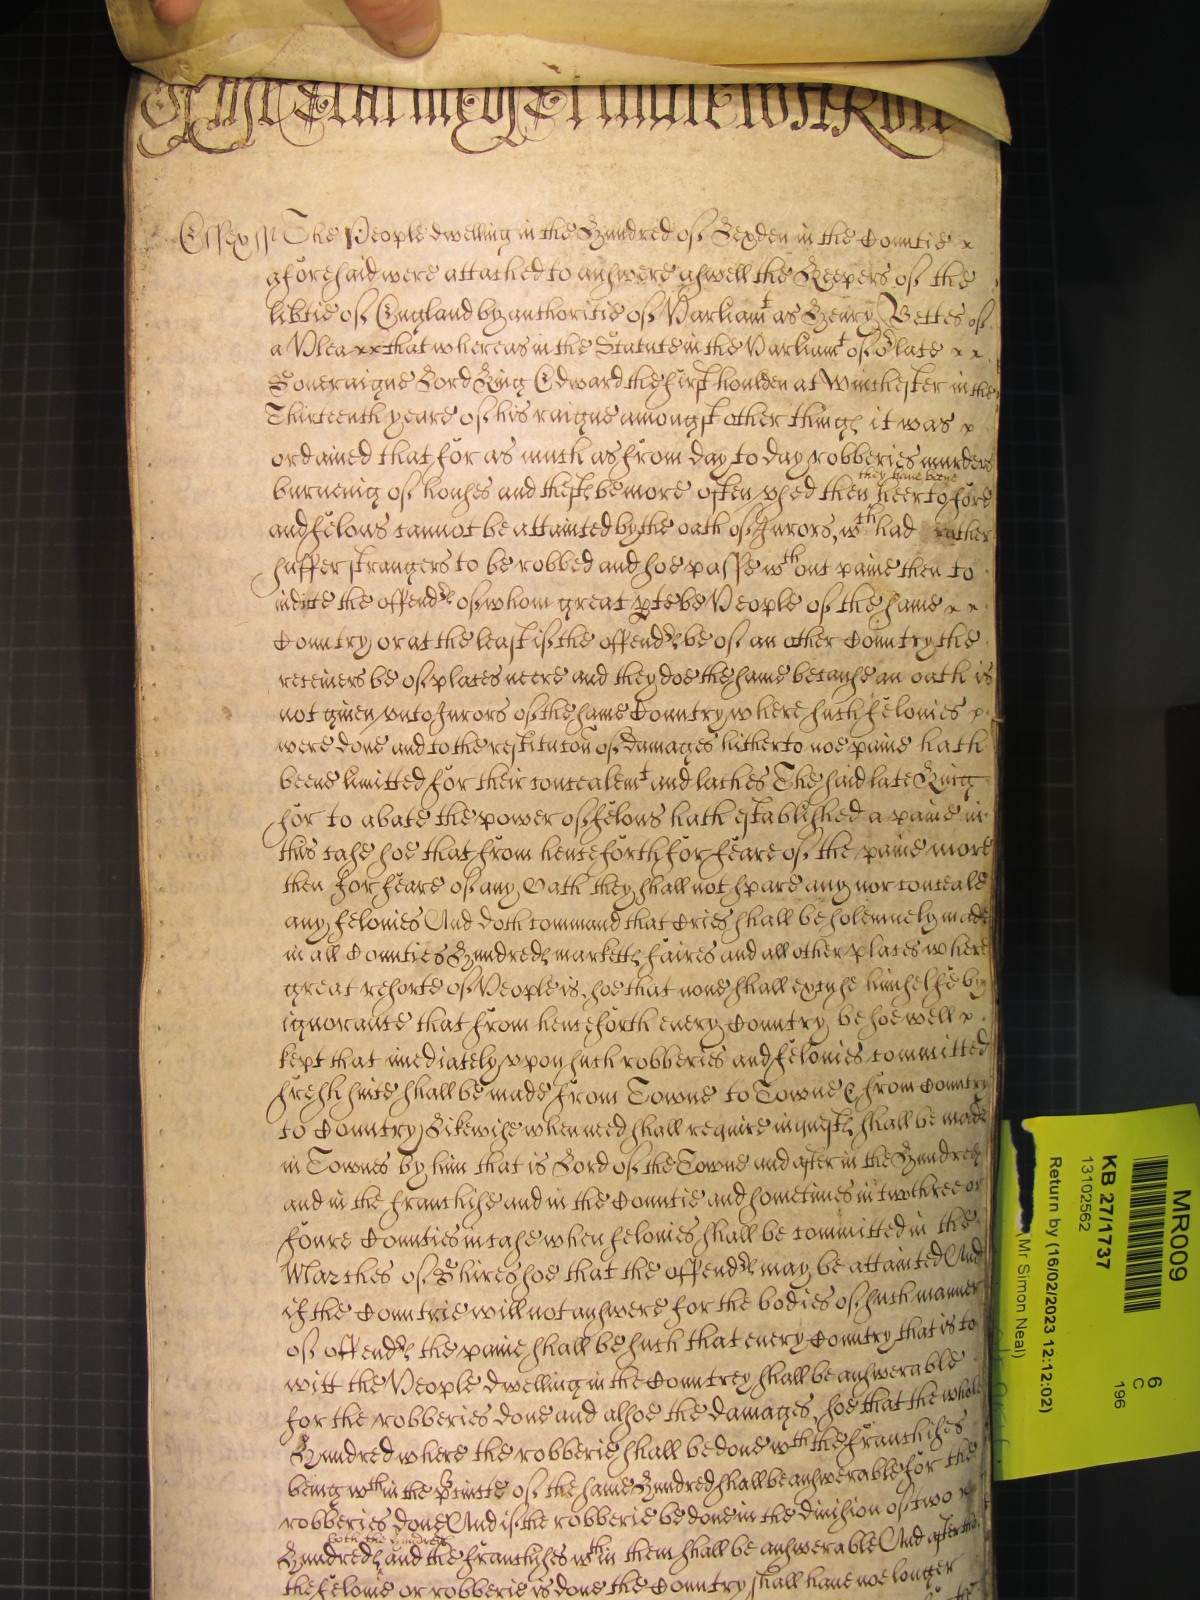 Of the Terme of Trinitie
Essex ss The People dwelling in the Hundred of Lexden in the Countie x
aforesaid were attached to answere aswell the Keepers of the
libtie of England by authoritie of Parliamt as Henry Bettes of
a Plea xx that whereas in the Statute in the Parliamt of oe late x x
Soveraigne Lord King Edward the first houlden at Winchester in the
Thirteenth yeare of his raigne amongst other things it was x
ordained that for as much as from day to day robberies murders
burneing of houses and thefts be more often vsed then they have beene heertofore
and felons cannot be attainted by the oath of Jurors, wth had rather
suffer strangers to be robbed and soe passe wthout paine then to
indite the offendrs of whom great pte be People of the same x x
Country or at the least if the offendrs be of an other Country the
receivers be of places neere and they doe the same because an oath is
not given vnto Jurors of the same Country where such felonies x
were done and to the restitucon of damages hitherto noe paine hath
beene limitted for their concealemt and laches The said late King
for to abate the power of felons hath established a paine in
this case soe that from henceforth for feare of the paine more
then for feare of any Oath they shall not spare any nor conceale
any felonies And doth command that Cries shall be solemnely made
in all Counties Hundreds marketts faires and all other places where
great resorte of People is, soe that none shall excuse himselfe by
ignorance that from henceforth every Country be soe well x
kept that imediately vpon such robberies and felonies committed
fresh suite shall be made from Towne to Towne & from Country
to Country Likewise when need shall require inquests shall be made
in Townes by him that is Lord of the Towne and after in the Hundred
and in the franchise and in the Countie and sometimes in two three or
foure Counties in case when felonies shall be committed in the
Marches of Shires soe that the offendrs may be attainted And
if the Countrie will not answere for the bodies of such manner
of offendrs the paine shall be such that every Country that is to
witt the People dwelling in the Countrey shall be answerable
for the robberies done and alsoe the damages, soe that the whole
Hundred where the robberie shall be done wth the franchises
being wthin the Pcincte of the same Hundred shall be answerable for the
robberies done And if the robberie be done in the division of two x
Hundreds both the hundreds and the franchises wthin them shall be answerable And after that
the felonie or robberie is done the Country shall have noe longer
MR009
KB 27/1737
13102562
Return by (16/02/2023 12:12:02)
Mr Simon Neal)
6
C
196